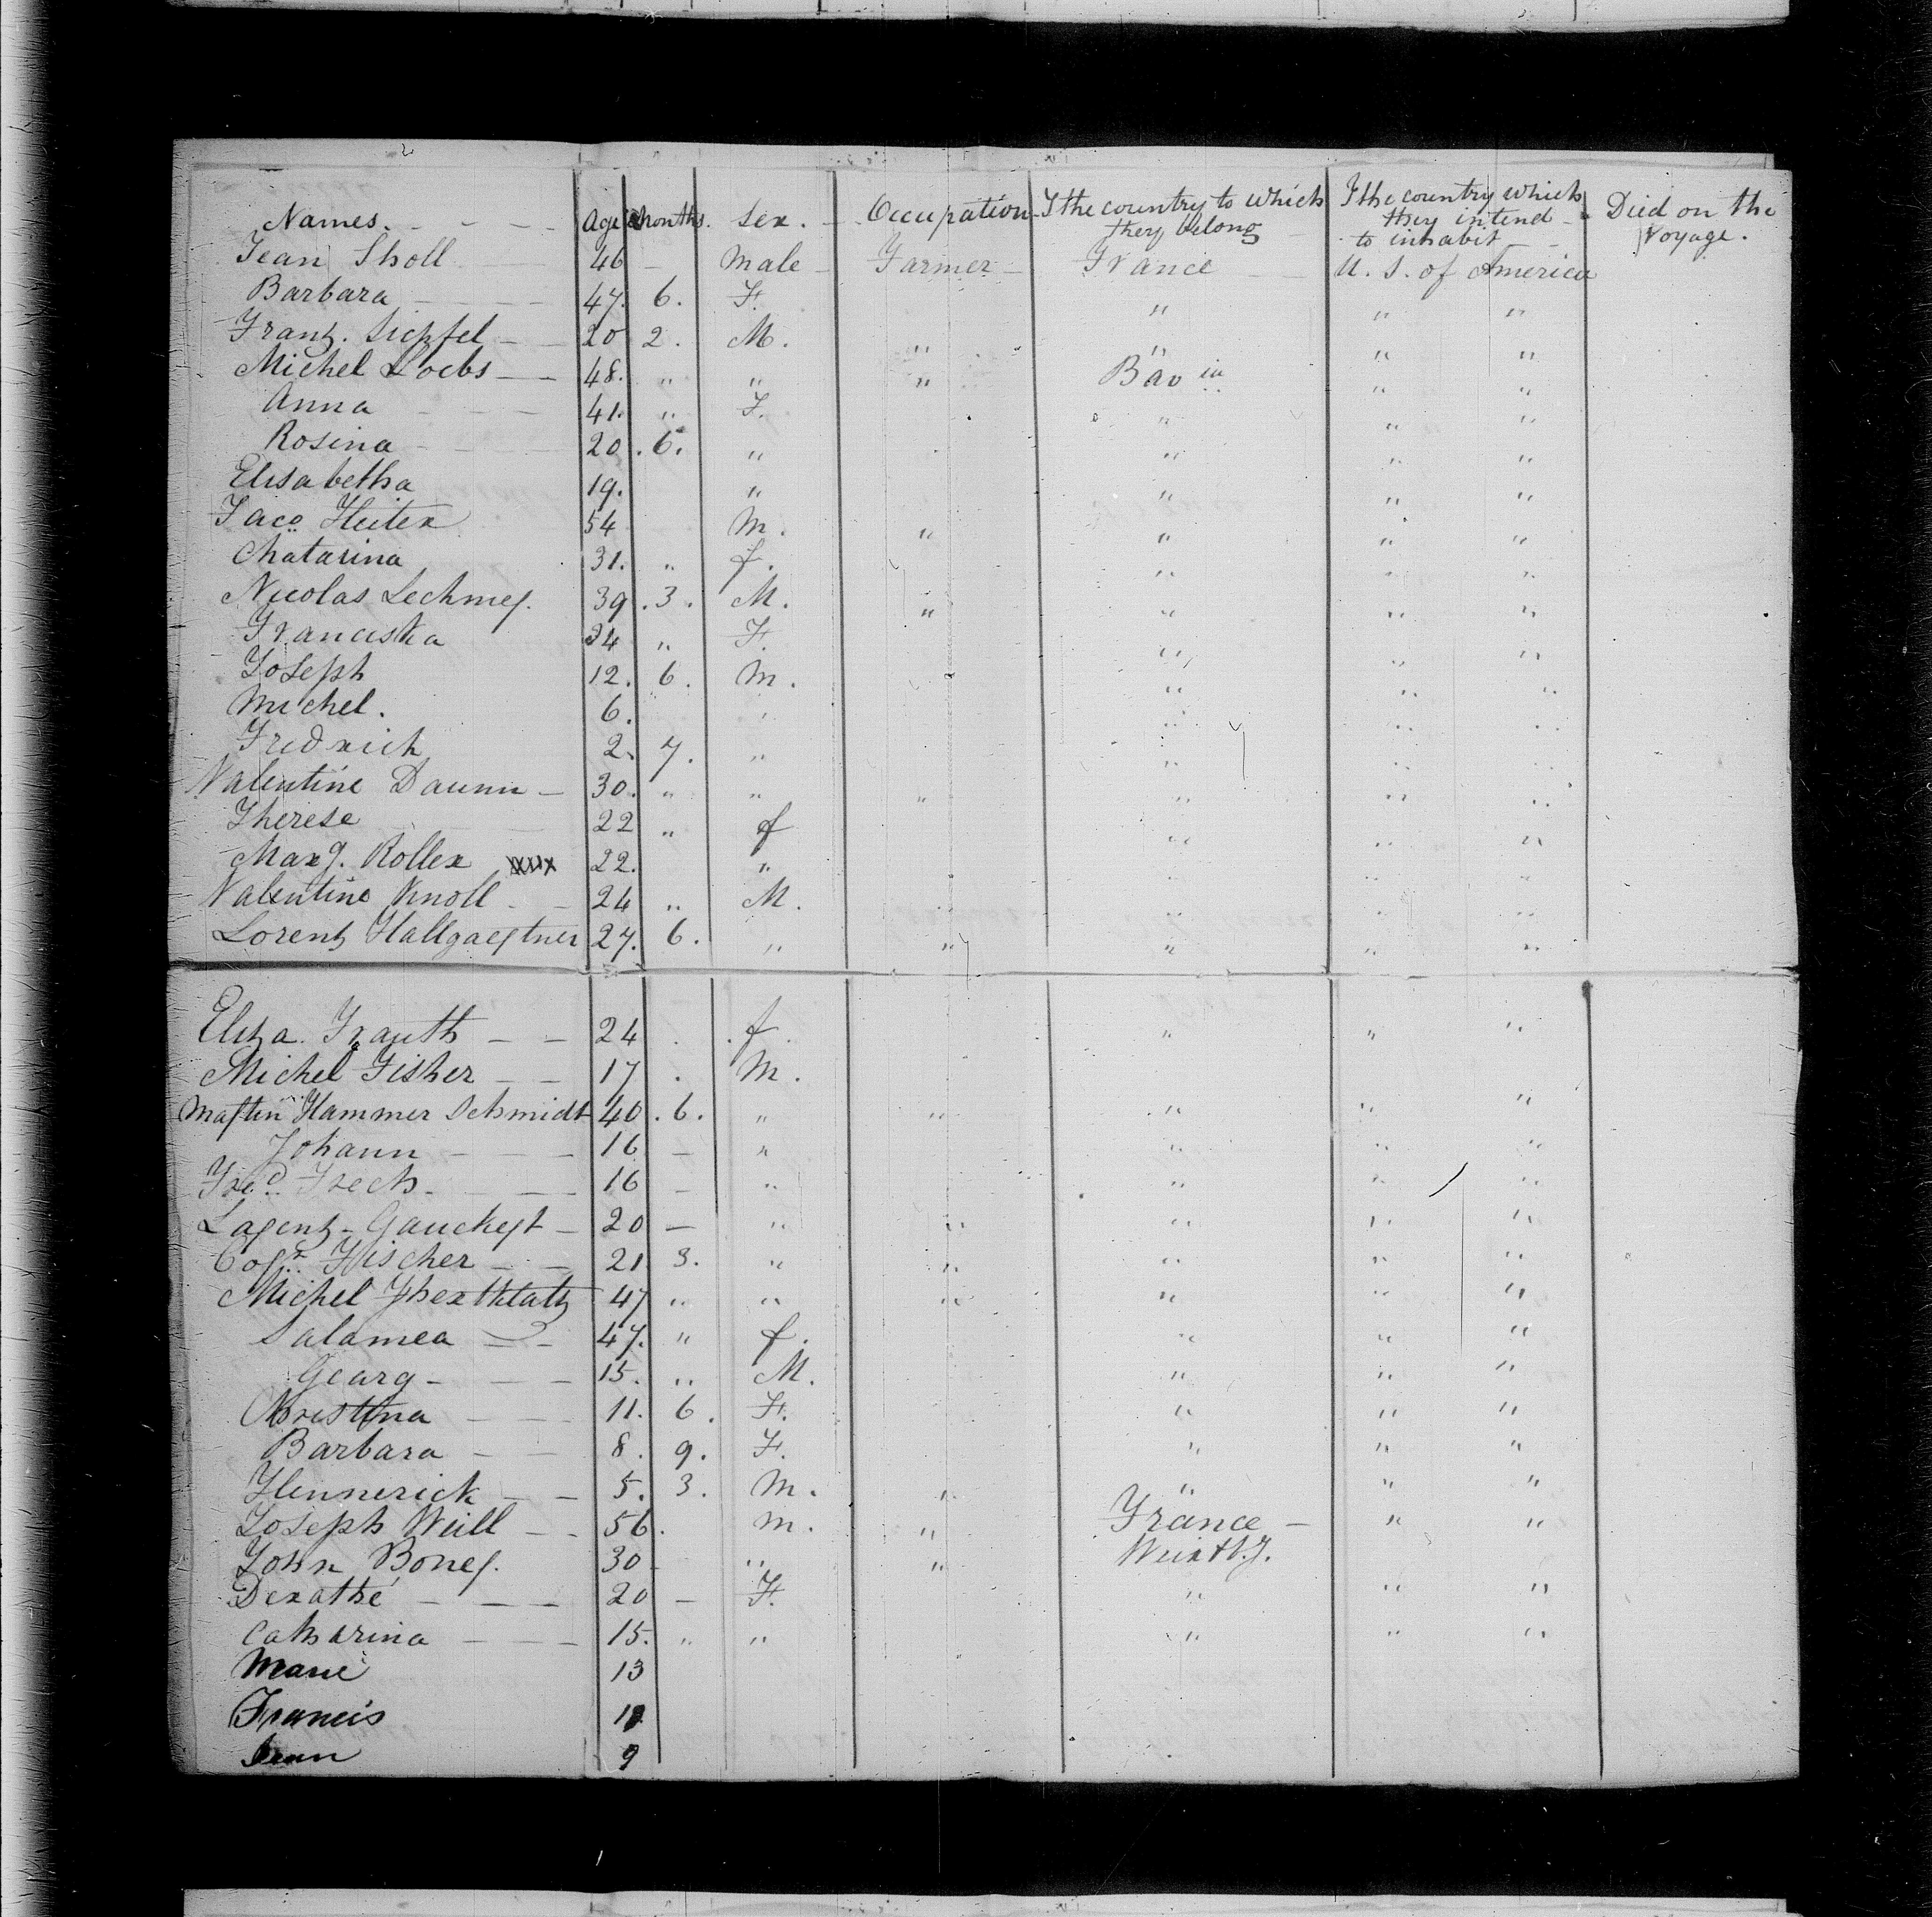 Names. Age Months. Sex. Occupation The country to which they belong The country which they intend to inhabit Died on the Voyage.
Jean Sholl 46 — Male Farmer France U. S. of America
Barbara 47. 6. F. " " "
Frantz. Siepfel 20 2. M. " " " "
Michel Loebs 48. " " " Bavia " "
Anna 41. " F. " " "
Rosina 20. 6. " " " "
Elisabetha 19. " " " "
Jaco Heiter 54 M. " " " "
Chatarina 31. " f. " " "
Nicolas Lechmer. 39. 3. M. " " " "
Franciska 34 " F. " " "
Joseph 12. 6. M. " " "
Michel. 6. " " " "
Fredrich 2. 7. " " " "
Valentine Daumn 30. " " " " " "
Therese 22 " f " " "
Marg. Roller 22. " " " "
Valentine Knoll 24 " M. " " "
Lorentz Hallgaertner 27. 6. " " " " "
Eliza. Frauth 24 . f " " "
Michel Fisher 17 . M.
Martin Hammer Schmidt 40. 6. " " " " "
Johann 16 — " " " "
Fred. Frech. 16 — " " " "
Lorentz Gauckert 20 — " " " " "
Fischer 21. 3. " " " " "
Michel 47 " " " " " "
Salamea 47. " f. " " "
Gearg 15. " M. " " "
Christina 11. 6. F. " " "
Barbara 8. 9. F. " " "
Hennerick 5. 3. M. " " " "
Joseph Weill 56. M. " France " "
John Boner. 30 " " Weirtb.g.
Derathé 20 — F. " " "
Catharina 15. " " " " "
Marie 13
Francis
Jean 9